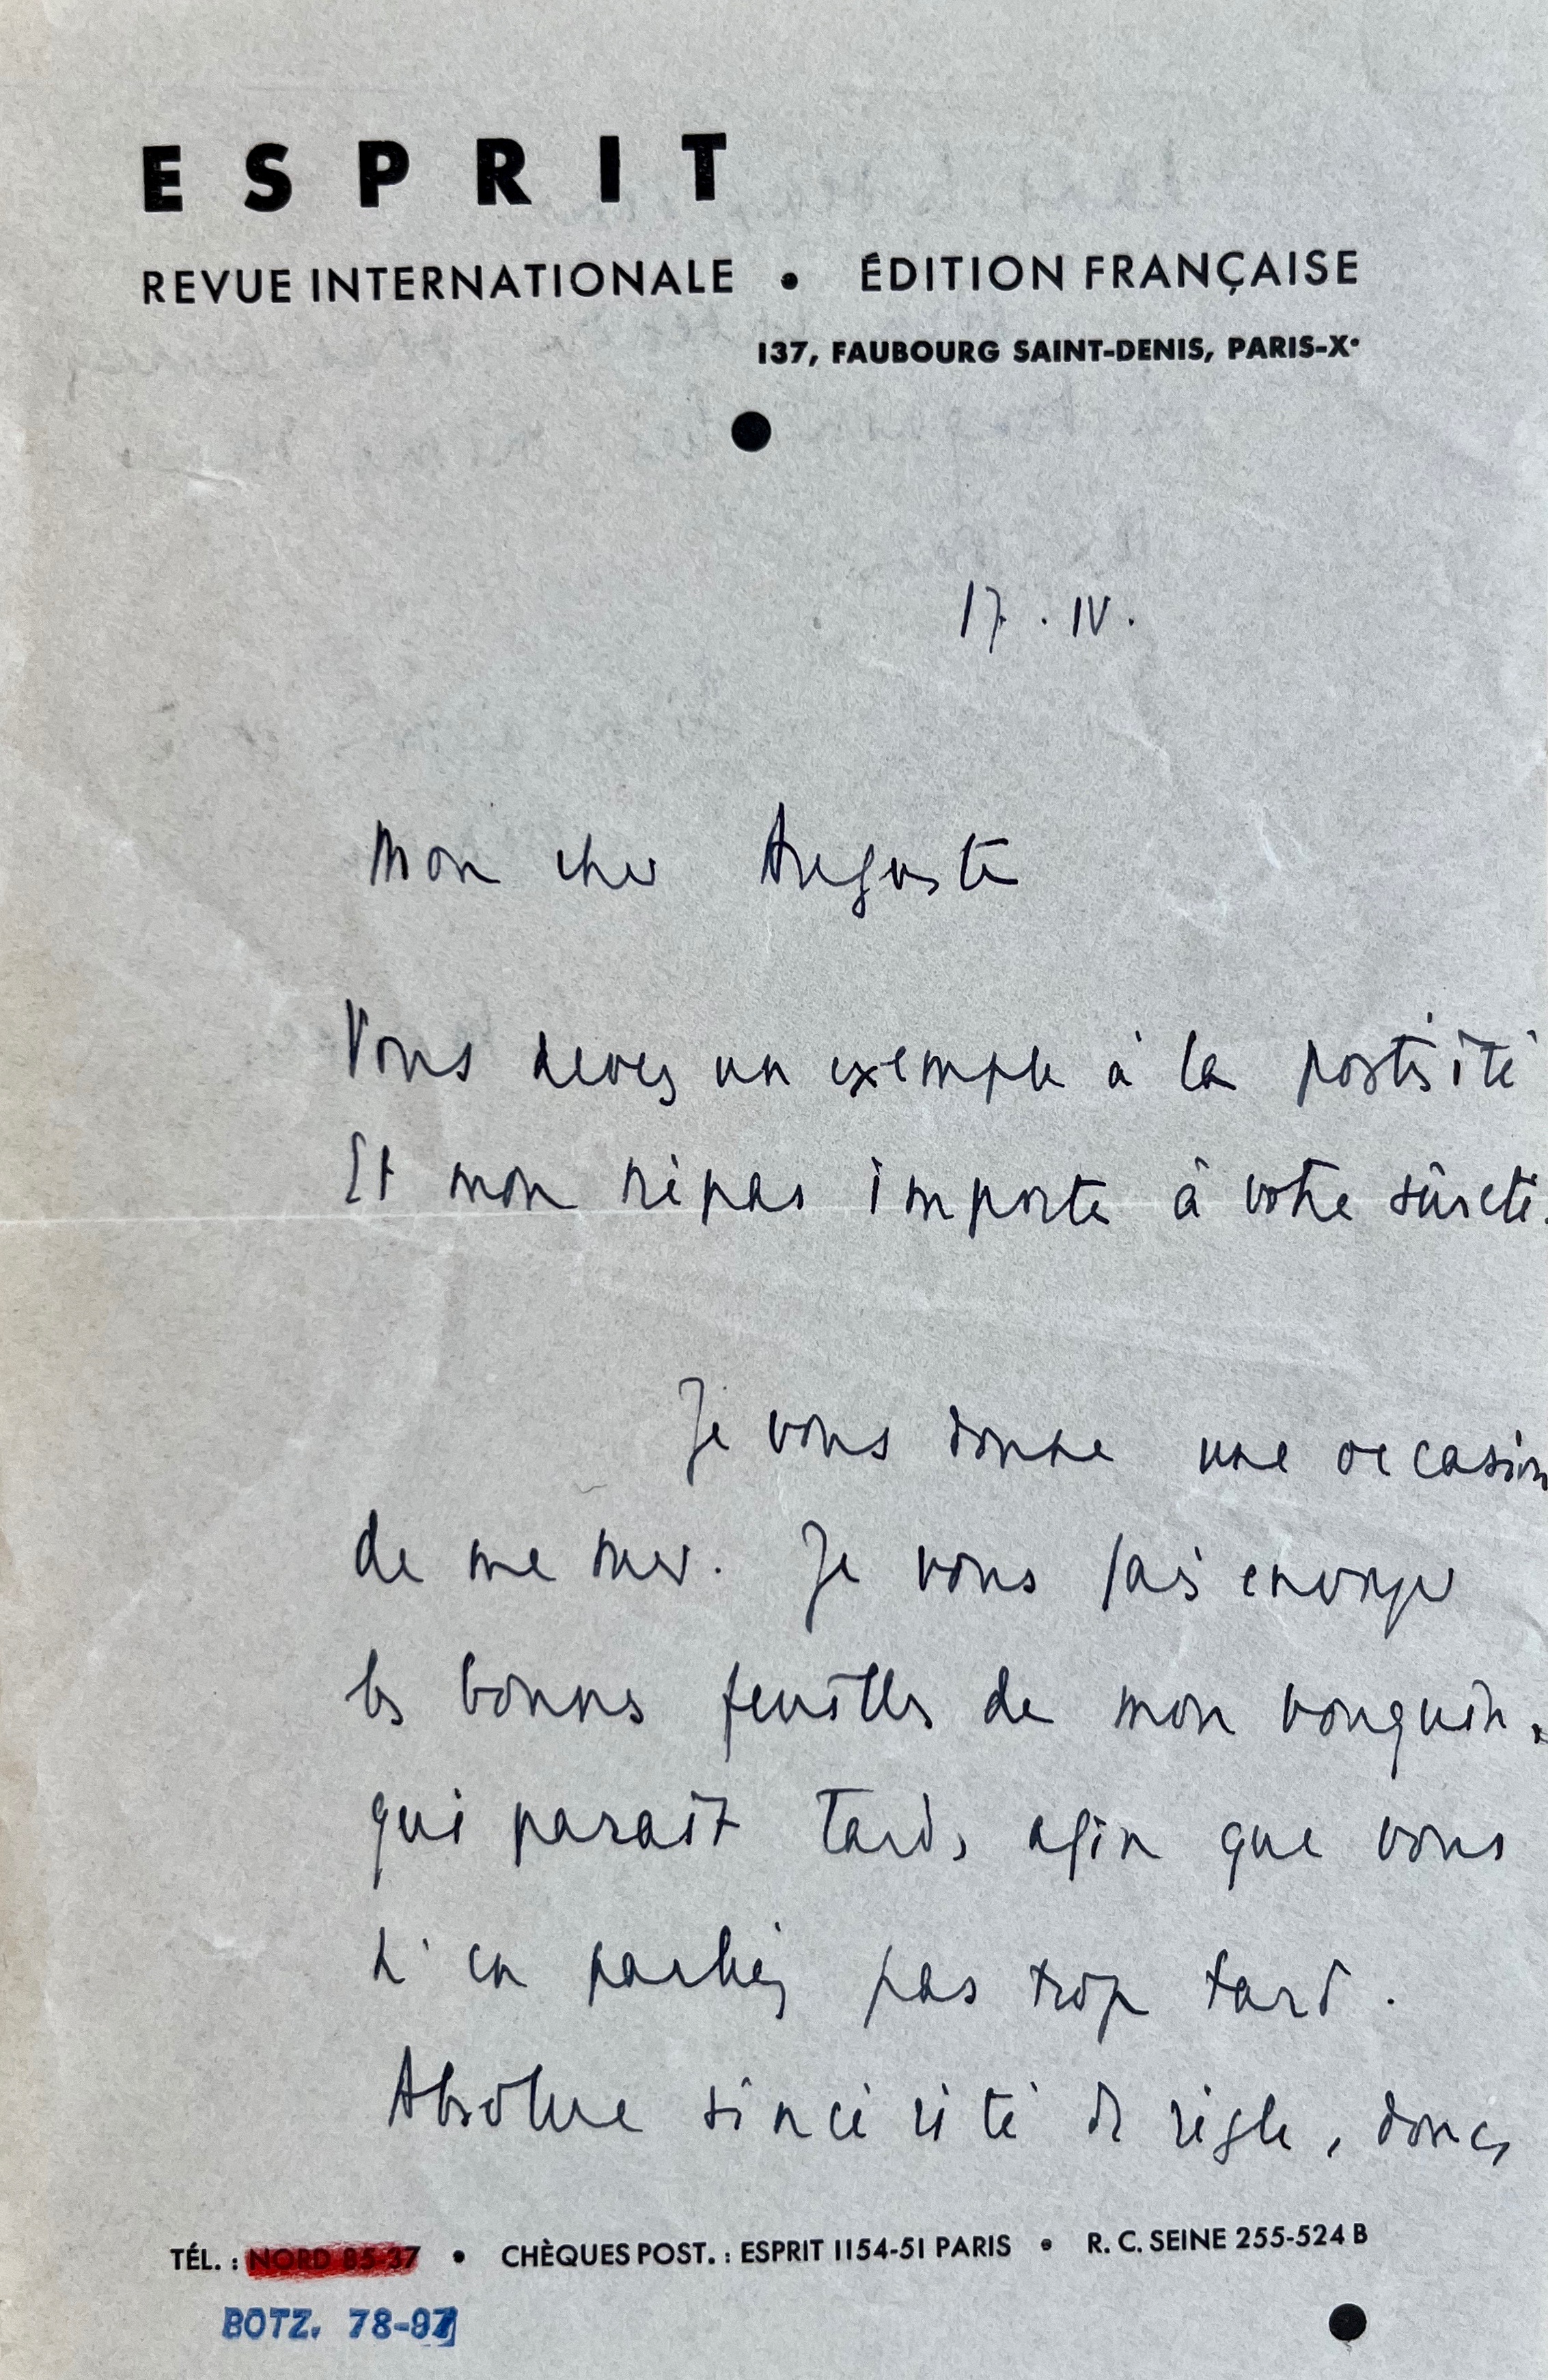 ESPRIT
REVUE INTERNATIONALE • ÉDITION FRANÇAISE
137, FAUBOURG SAINT-DENIS, PARIS-Xe
17. IV.
Mon cher Auguste
Vous devez un exemple à la postérité
Et mon trépas importe à votre sûreté.
Je vous donne une occasion
de me tuer. Je vous fais envoyer
les bonnes feuilles de mon bouquin,
qui paraît tard, afin que vous
n'en parliez pas trop tard.
Absolue sincérité de règle, donc,
TÉL. : NORD 85-37 • CHÈQUES POST. : ESPRIT 1154-51 PARIS • R. C. SEINE 255-524 B
BOTZ. 78-97